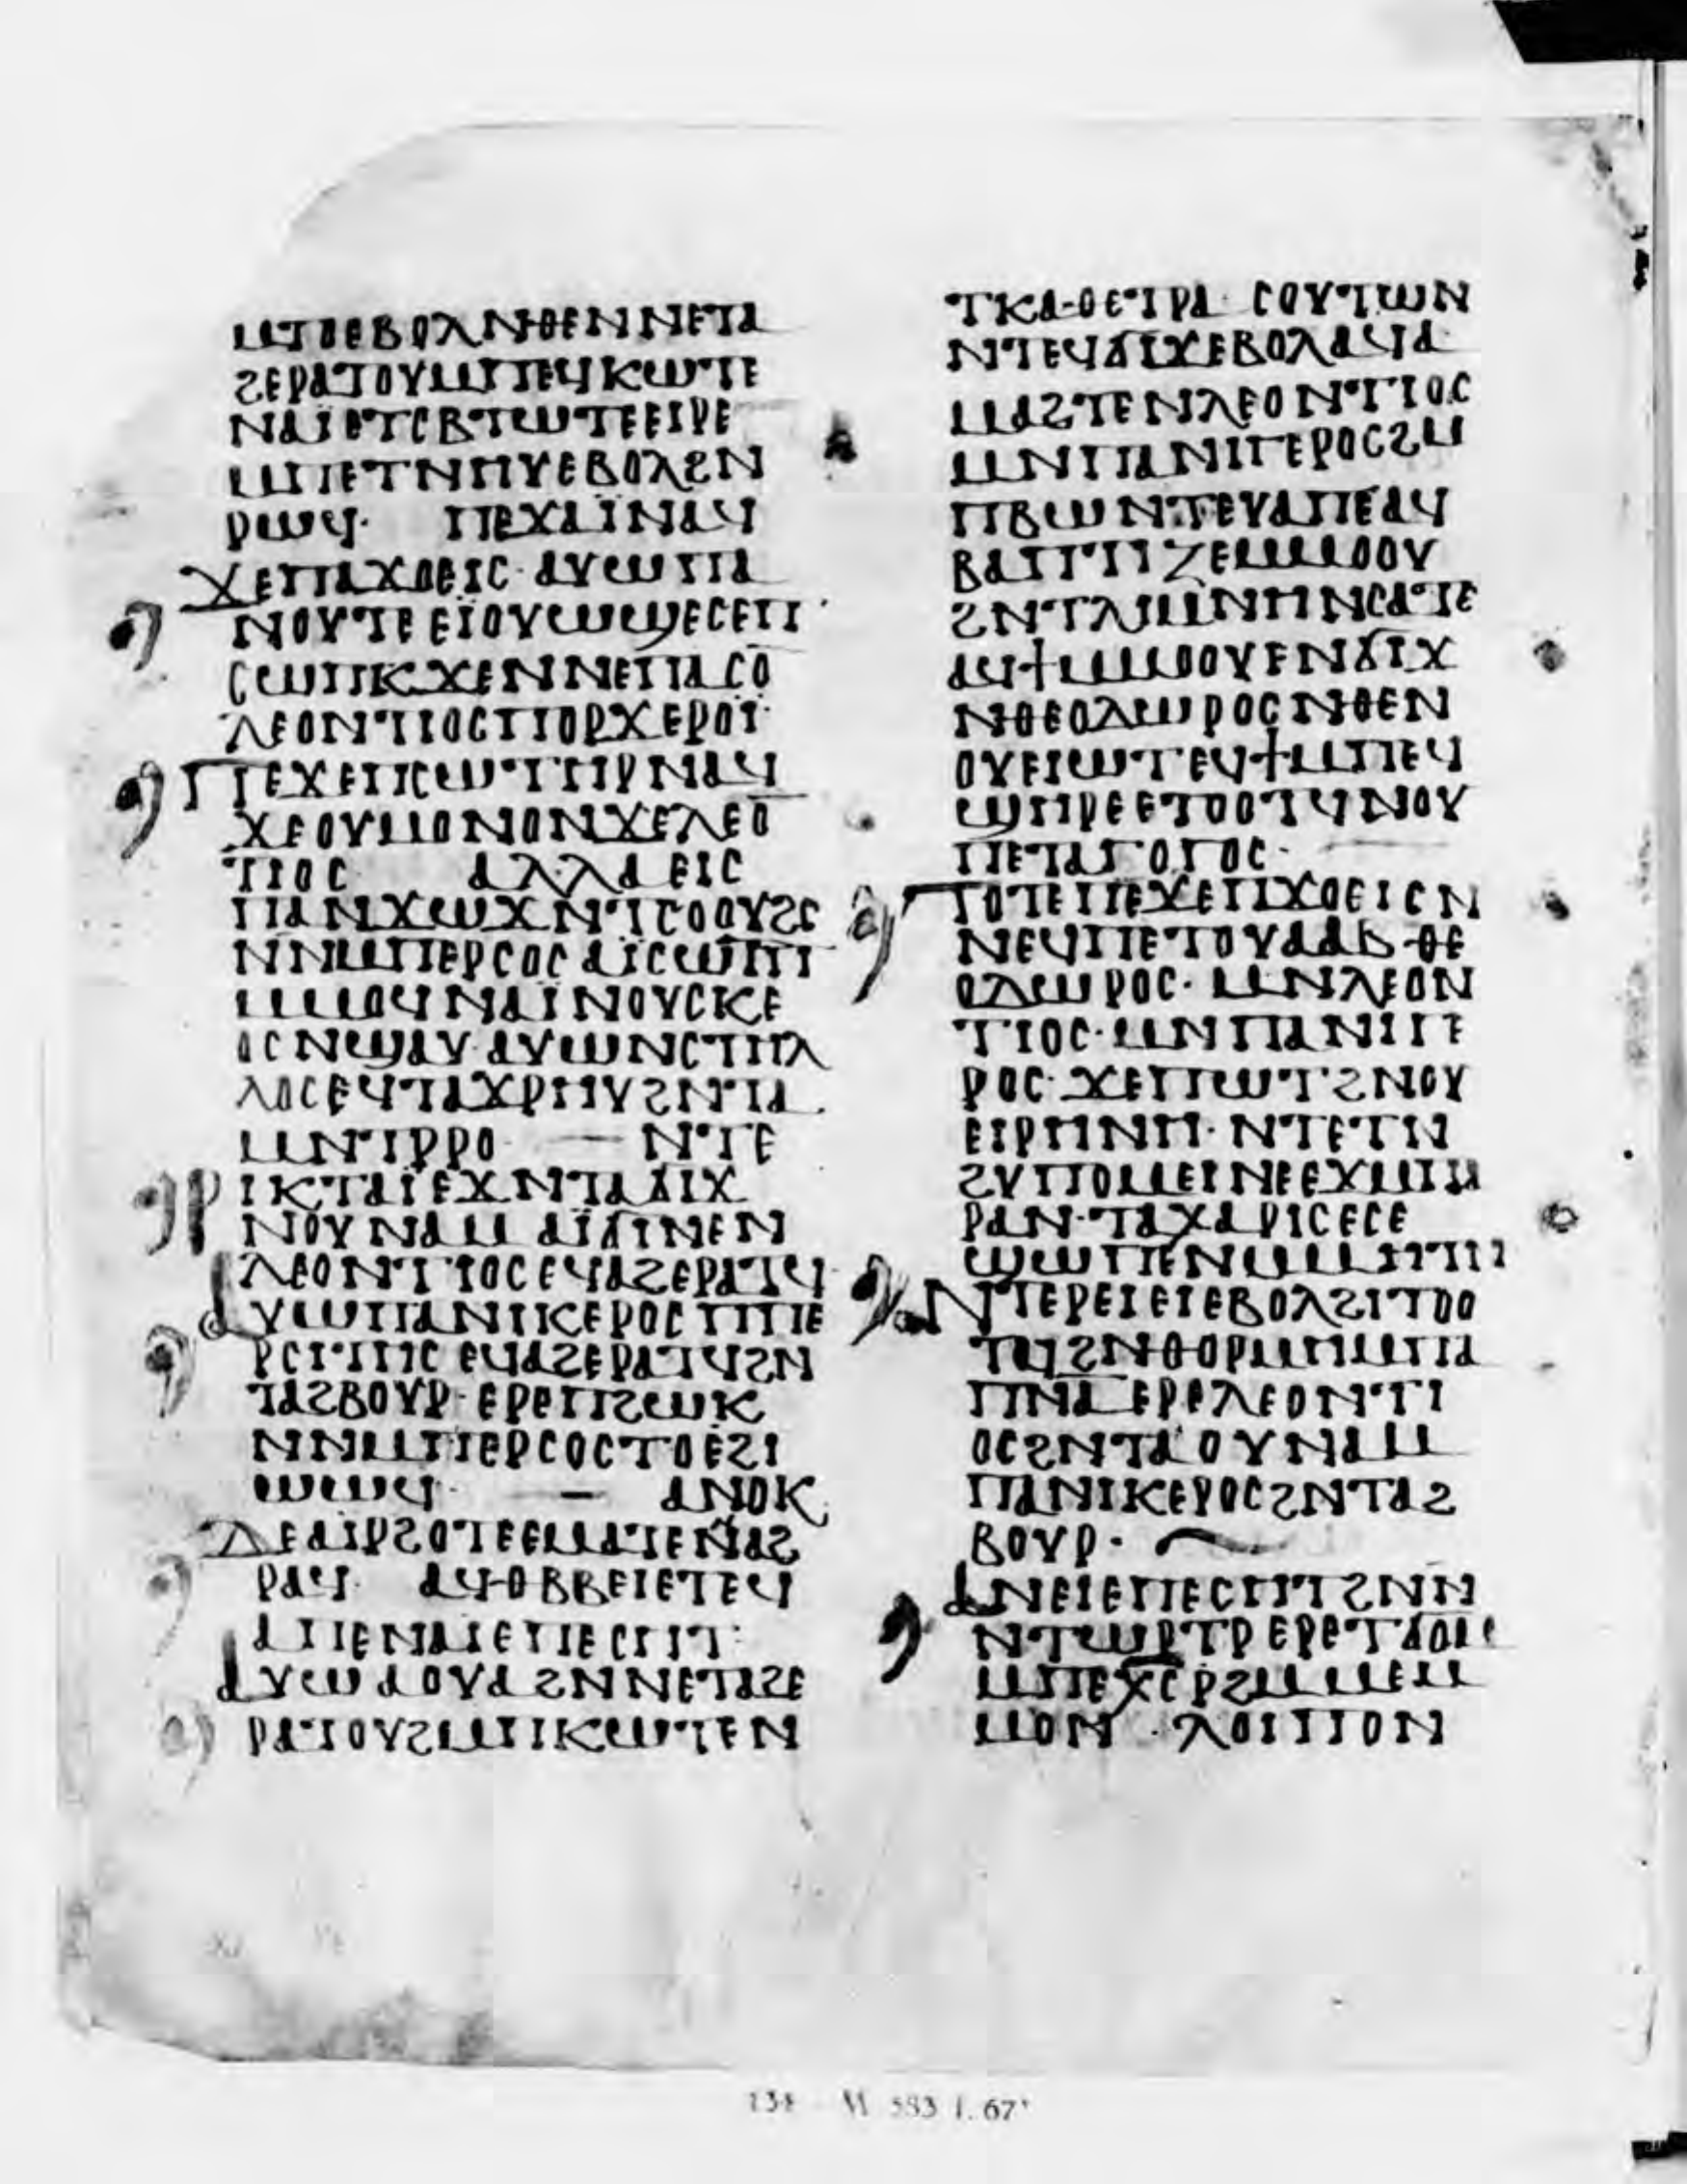 ⲙⲡⲟⲉⲃⲟⲗⲛⲑⲉⲛⲛⲉⲧⲁ
ϩⲉⲣⲁⲧⲟⲩⲙⲡⲉϥⲕⲱⲧⲉ
ⲛⲁⲓⲉⲧⲥⲃⲧⲱⲧⲉⲉⲓⲣⲉ
ⲙⲡⲉⲧⲛⲏⲩⲉⲃⲟⲗϩⲛ
ⲣⲱϥ· ⲡⲉϫⲁⲓⲛⲁϥ
ϫⲉⲡⲁϫⲟⲉⲓⲥ· ⲁⲩⲱⲡⲁ
ⲛⲟⲩⲧⲉⲉⲓⲟⲩⲱϣⲉⲥⲉⲡ
ⲥⲱⲡⲕϫⲉⲛⲛⲉⲡⲁⲥⲟ̄
ⲗⲉⲟⲛⲧⲓⲟⲥⲡⲟⲣϫⲉⲣⲟⲓ·
ⲡⲉϫⲉⲡⲥⲱⲧⲏⲣⲛⲁϥ
ϫⲉⲟⲩⲙⲟⲛⲟⲛϫⲉⲗⲉⲟ̄
ⲧⲓⲟⲥ ⲁⲗⲗⲁⲉⲓⲥ
ⲡⲁⲛϫⲱϫⲛⲧⲥⲟⲟⲩϩⲥ
ⲛⲛⲙⲡⲉⲣⲥⲟⲥⲁⲓⲥⲱⲧⲡ
ⲙⲙⲟϥⲛⲁⲓⲛⲟⲩⲥⲕⲉ
ⲟⲥⲛϣⲁⲩ· ⲁⲩⲱⲛⲥⲧⲏⲗ
ⲗⲟⲥⲉϥⲧⲁϫⲣⲏⲩϩⲛⲧⲁ
ⲙⲛⲧⲣⲣⲟ — ⲛⲧⲉ
ⲣⲓⲕⲧⲁⲓⲉϫⲛⲧⲁϭⲓϫ
ⲛⲟⲩⲛⲁⲙ ⲁⲓϭⲓⲛⲉⲛ
ⲗⲉⲟⲛⲧⲓⲟⲥⲉϥⲁϩⲉⲣⲁⲧϥ
ⲁⲩⲱⲡⲁⲛⲓⲕⲉⲣⲟⲥⲡⲡⲉ
ⲣⲥⲓⲧⲏⲥ ⲉϥⲁϩⲉⲣⲁⲧϥϩⲛ
ⲧⲁϩⲃⲟⲩⲣ· ⲉⲣⲉⲡϩⲱⲕ
ⲛⲛⲙⲡⲉⲣⲥⲟⲥⲧⲟⲉϩⲓ
ⲱⲱϥ· — ⲁⲛⲟⲕ
ⲇⲉⲁⲓⲣϩⲟⲧⲉⲉⲙⲁⲧⲉⲛⲁϩ
ⲣⲁϥ· ⲁϥⲑⲃⲃⲉⲓⲉⲧⲉϥ
ⲁⲡⲉⲛⲁⲓⲉⲡⲉⲥⲏⲧ·
ⲁⲩⲱⲁⲟⲩⲁϩⲛⲛⲉⲧⲁϩⲉ
ⲣⲁⲧⲟⲩϩⲙⲡⲕⲱⲧⲉⲛ
ⲧⲕⲁⲑⲉⲧⲣⲁ· ⲥⲟⲩⲧⲱⲛ
ⲛⲧⲉϥϭⲓϫⲉⲃⲟⲗⲁϥⲁ
ⲙⲁϩⲧⲉⲛⲗⲉⲟⲛⲧⲓⲟⲥ
ⲙⲛⲡⲁⲛⲓⲅⲉⲣⲟⲥϩⲙ
ⲡⲃⲱⲛⲧⲉⲩⲁⲡⲉⲁϥ
ⲃⲁⲡⲧⲓⲍⲉⲙⲙⲟⲟⲩ
ϩⲛⲧⲗⲓⲙⲛⲏⲛⲥⲁⲧⲉ
ⲁϥϯⲙⲙⲟⲟⲩⲉⲛϭⲓϫ
ⲛⲑⲉⲟⲇⲱⲣⲟⲥⲛⲑⲉⲛ
ⲟⲩⲉⲓⲱⲧⲉϥϯⲙⲡⲉϥ
ϣⲏⲣⲉⲉⲧⲟⲟⲧϥⲛⲟⲩ
ⲡⲉⲧⲁⲅⲟⲅⲟⲥ·
ⲧⲟⲧⲉⲡⲉϫⲉⲡϫⲟⲉⲓⲥⲛ
ⲛⲉϥⲡⲉⲧⲟⲩⲁⲁⲃ ⲑⲉ
ⲟⲇⲱⲣⲟⲥ· ⲙⲛⲗⲉⲟⲛ
ⲧⲓⲟⲥ· ⲙⲛⲡⲁⲛⲓⲅⲉ
ⲣⲟⲥ· ϫⲉⲡⲱⲧϩⲛⲟⲩ
ⲉⲓⲣⲏⲛⲏ· ⲛⲧⲉⲧⲛ
ϩⲩⲡⲟⲙⲉⲓⲛⲉⲉϫⲙⲡⲁ
ⲣⲁⲛ· ⲧⲁⲭⲁⲣⲓⲥⲉⲥⲉ
ϣⲱⲡⲉⲛⲙⲙⲏⲧⲛ
ⲛⲧⲉⲣⲉⲓⲉⲓⲉⲃⲟⲗϩⲓⲧⲟⲟ
ⲧϥϩⲛⲑⲟⲣⲙⲏⲙⲡⲁ
ⲡⲛⲁ ⲉⲣⲉⲗⲉⲟⲛⲧⲓ
ⲟⲥϩⲛⲧⲁⲟⲩⲛⲁⲙ
ⲡⲁⲛⲓⲕⲉⲣⲟⲥϩⲛⲧⲁϩ
ⲃⲟⲩⲣ·
ⲁⲛⲉⲓⲉⲡⲉⲥⲏⲧϩⲛⲛ
ⲛⲧⲱⲣⲧⲣ ⲉⲣⲉⲧϭⲟⲙ
ⲙⲡⲉⲭⲥⲣϩⲙⲙⲉⲙ
ⲙⲟⲛ· ⲗⲟⲓⲡⲟⲛ
M 583 f. 67ᵛ